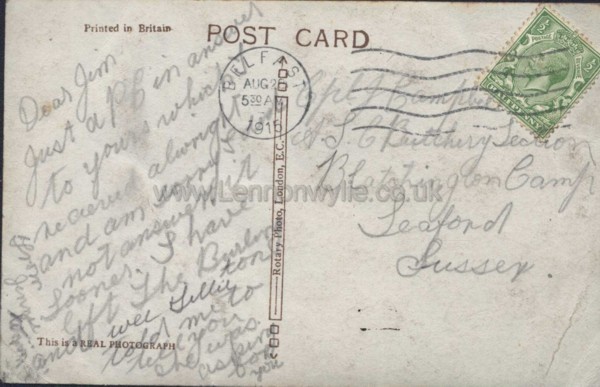 Printed in Britain
POST CARD
BELFAST
AUG 2
5 30 A
191
Dear Jim
Just a PC in answer
to yours which
I received alright
and am sorry I did
not answer it
sooner. I have
left The Burlington
and
wee Tillie
told me to
tell you
she was
asking
for
you
Cpl J Campbell
A.S.C Butchery Section
Blatchington Camp
Seaford
Sussex
Rotary Photo, London, E.C.
This is a REAL PHOTOGRAPH
www.Lennonwylie.co.uk